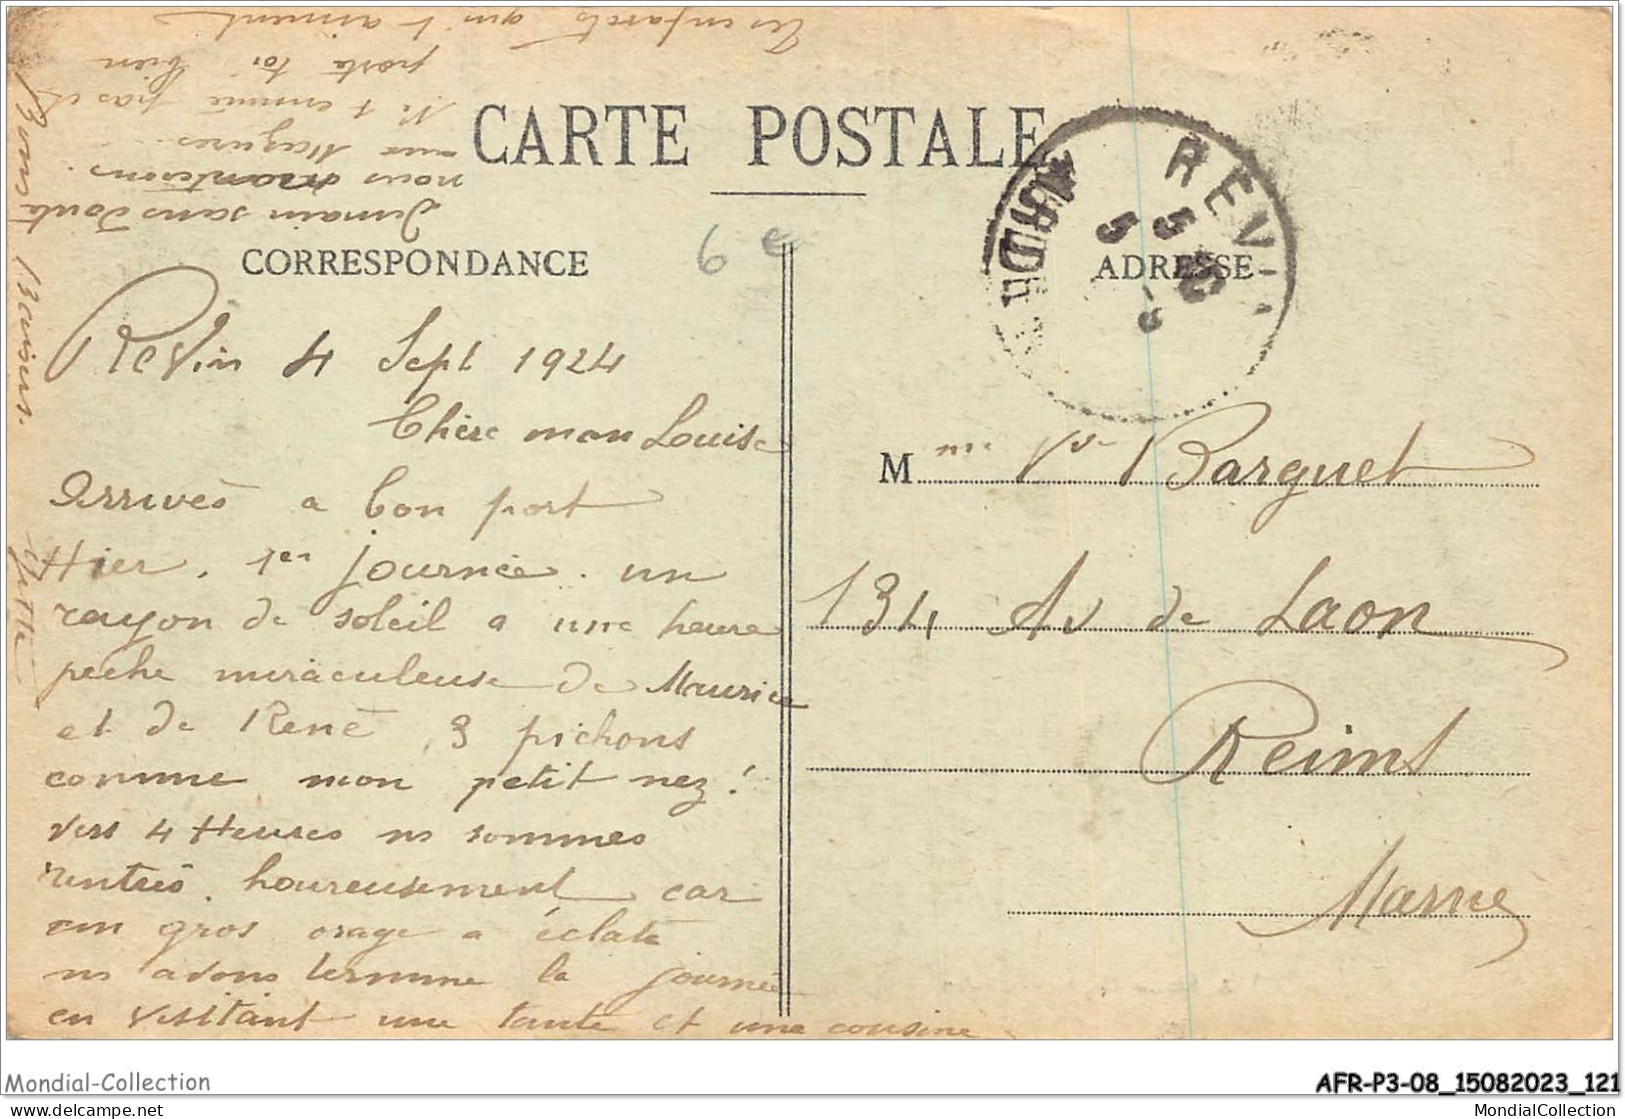 CARTE POSTALE
CORRESPONDANCE
ADRESSE
6 e
REVIN
5
5
Revin 4 Sept 1924
Chère man Louise
Arrivés a bon port
Hier, 1er journée. un
rayon de soleil a une heure
peche miraculeuse de Maurice
et de René, 3 pichons
comme mon petit nez!
vers 4 Heures ns sommes
rentrés, houreusement car
un gros orage a éclaté
ns avons terminé la journée
en visitant une tante et une cousine
Demain sans doute
nous monterons
aux Mazures.
Ne t ennuie pas et
porte toi bien
Tes enfants qui t aiment
Bons doux Baisers.
Yvette
Mme Vve Barguet
134 Av de Laon
Reims
Marne
Mondial-Collection
AFR-P3-08_15082023_121
delcampe.net
MondialCollection